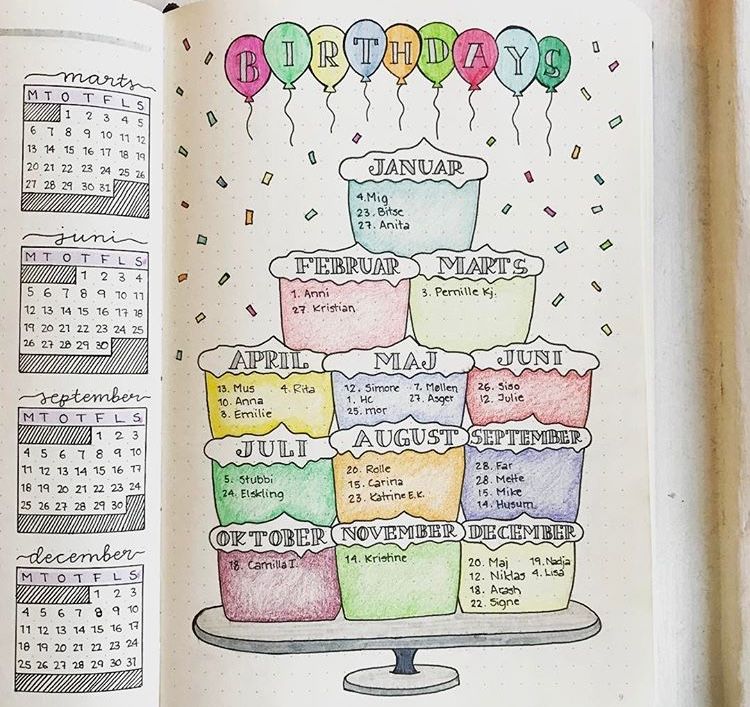 marts
M T O T F L S
1 2 3 4 5
6 7 8 9 10 11 12
13 14 15 16 17 18 19
20 21 22 23 24 25 26
27 28 29 30 31
juni
M T O T F L S
1 2 3 4
5 6 7 8 9 10 11
12 13 14 15 16 17 18
19 20 21 22 23 24 25
26 27 28 29 30
september
M T O T F L S
1 2 3
4 5 6 7 8 9 10
11 12 13 14 15 16 17
18 19 20 21 22 23 24
25 26 27 28 29 30
december
M T O T F L S
1 2 3
4 5 6 7 8 9 10
11 12 13 14 15 16 17
18 19 20 21 22 23 24
25 26 27 28 29 30 31
BIRTHDAYS
JANUAR
4. Mig
23. Bitse
27. Anita
FEBRUAR
1. Anni
27. Kristian
MARTS
3. Pernille Kj.
APRIL
13. Mus 4. Rita
10. Anna
3. Emilie
MAJ
12. Simone 7. Møllen
1. HC 27. Asger
25. mor
JUNI
26. Siso
12. Julie
JULI
5. Stubbi
24. Elskling
AUGUST
20. Rolle
15. Carina
23. Katrine E.K.
SEPTEMBER
28. Far
28. Mette
15. Mike
14. Husum
OKTOBER
18. Camilla I.
NOVEMBER
14. Kristine
DECEMBER
20. Maj 19. Nadja
12. Niklas 4. Lisa
18. Arash
22. Signe
9